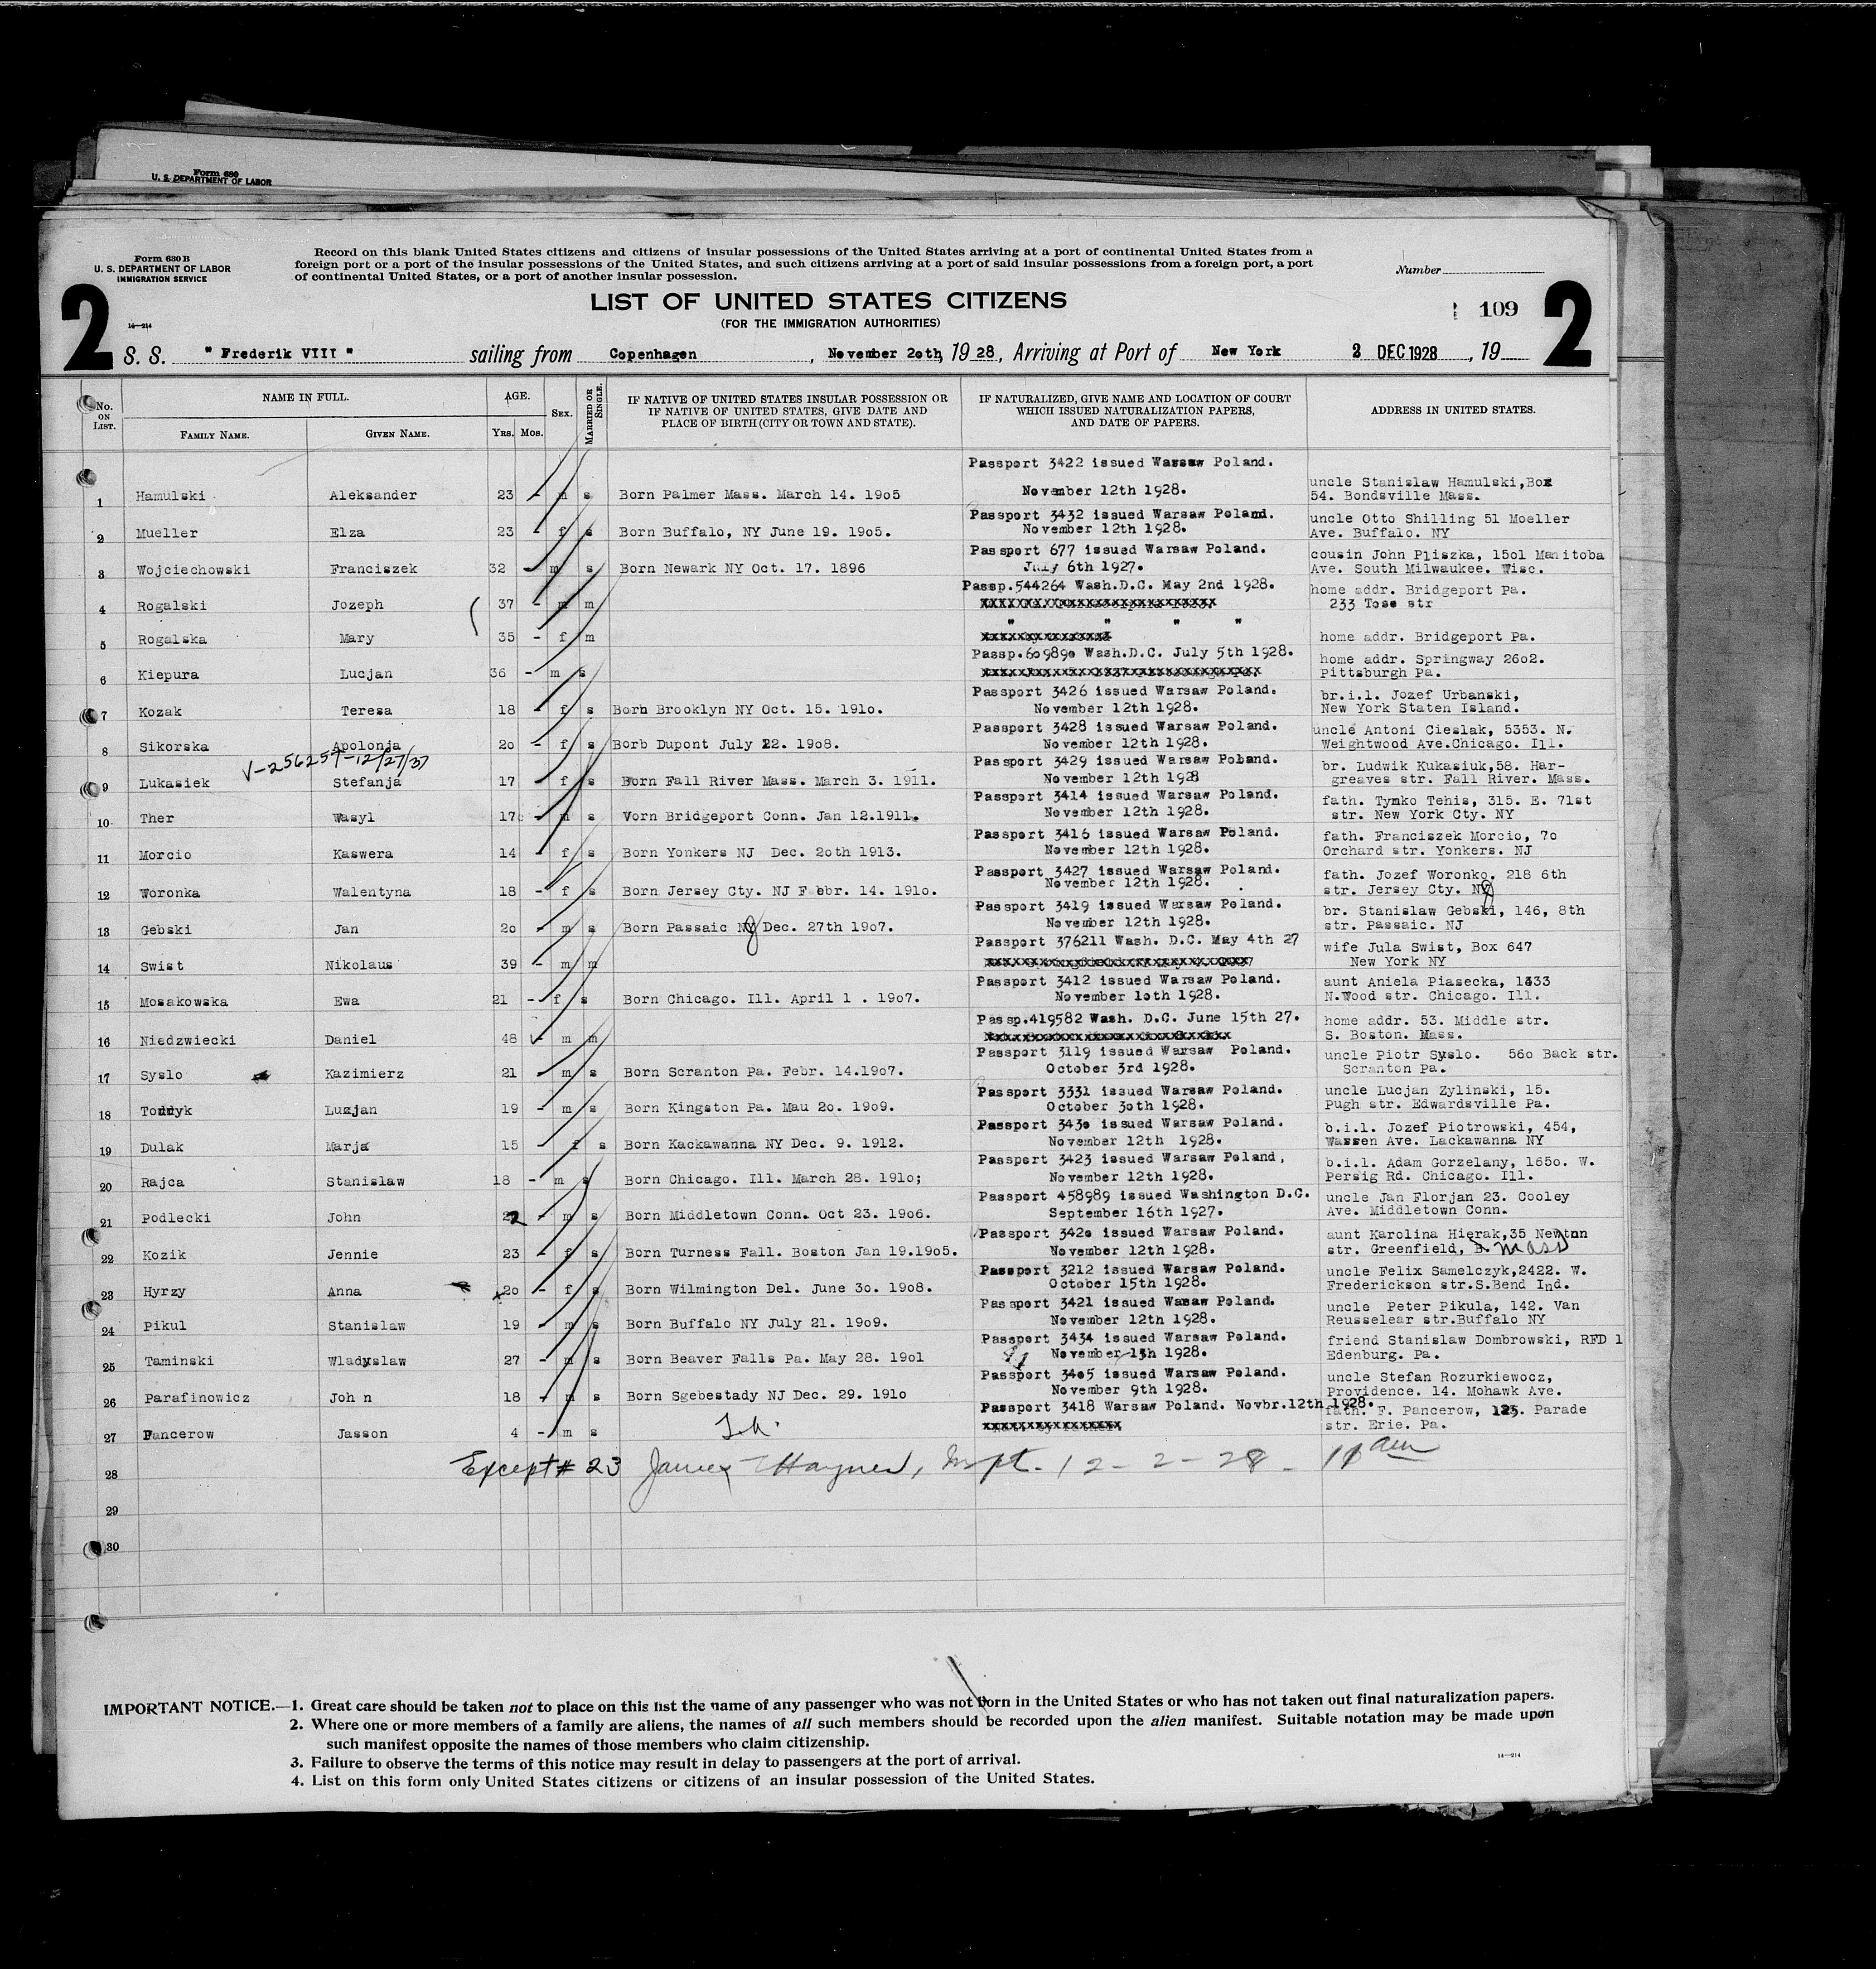 Form 630
U. S. DEPARTMENT OF LABOR
Form 630 B
U. S. DEPARTMENT OF LABOR
IMMIGRATION SERVICE
Record on this blank United States citizens and citizens of insular possessions of the United States arriving at a port of continental United States from a
foreign port or a port of the insular possessions of the United States, and such citizens arriving at a port of said insular possessions from a foreign port, a port
of continental United States, or a port of another insular possession.
Number
2 LIST OF UNITED STATES CITIZENS 109 2
(FOR THE IMMIGRATION AUTHORITIES)
14—214
S. S. " Frederik VIII " sailing from Copenhagen , November 2oth, 19 28, Arriving at Port of New York 2 DEC 1928 , 19
No. ON LIST. NAME IN FULL. FAMILY NAME. GIVEN NAME. AGE. YRS. MOS. SEX. MARRIED OR SINGLE. IF NATIVE OF UNITED STATES INSULAR POSSESSION OR IF NATIVE OF UNITED STATES, GIVE DATE AND PLACE OF BIRTH (CITY OR TOWN AND STATE). IF NATURALIZED, GIVE NAME AND LOCATION OF COURT WHICH ISSUED NATURALIZATION PAPERS, AND DATE OF PAPERS. ADDRESS IN UNITED STATES.
1 Hamulski Aleksander 23 - m s Born Palmer Mass. March 14. 19o5 Passport 3422 issued Warsaw Poland. November 12th 1928. uncle Stanislaw Hamulski,Box 54. Bondsville Mass.
2 Mueller Elza 23 - f s Born Buffalo, NY June 19. 19o5. Passport 3432 issued Warsaw Poland. November 12th 1928. uncle Otto Shilling 51 Moeller Ave. Buffalo. NY
3 Wojciechowski Franciszek 32 - m s Born Newark NY Oct. 17. 1896 Passport 677 issued Warsaw Poland. July 6th 1927. cousin John Pliszka, 15o1 Manitoba Ave. South Milwaukee. Wisc.
4 Rogalski Jozeph 37 - m m Passp.544264 Wash.D.C. May 2nd 1928. home addr. Bridgeport Pa. 233 Tose str
5 Rogalska Mary 35 - f m " " " " home addr. Bridgeport Pa.
6 Kiepura Lucjan 36 - m s Passp.6o989o Wash.D.C. July 5th 1928. home addr. Springway 26o2. Pittsburgh Pa.
7 Kozak Teresa 18 - f s Born Brooklyn NY Oct. 15. 191o. Passport 3426 issued Warsaw Poland. November 12th 1928. br.i.l. Jozef Urbanski, New York Staten Island.
8 Sikorska Apolonja 2o - f s Borb Dupont July 22. 19o8. Passport 3428 issued Warsaw Poland. November 12th 1928. uncle Antoni Cieslak, 5353. N. Weightwood Ave.Chicago. Ill.
V-256257-12/27/37
9 Lukasiek Stefanja 17 - f s Born Fall River Mass. March 3. 1911. Passport 3429 issued Warsaw Poland. November 12th 1928 br. Ludwik Kukasiuk,58. Har- greaves str. Fall River. Mass.
10 Ther Wasyl 17 - m s Vorn Bridgeport Conn. Jan 12.1911. Passport 3414 issued Warsaw Poland. November 12th 1928. fath. Tymko Tehis, 315. E. 71st str. New York Cty. NY
11 Morcio Kaswera 14 - f s Born Yonkers NJ Dec. 2oth 1913. Passport 3416 issued Warsaw Poland. November 12th 1928. fath. Franciszek Morcio, 7o Orchard str. Yonkers. NJ
12 Woronka Walentyna 18 - f s Born Jersey Cty. NJ Febbr. 14. 191o. Passport 3427 issued Warsaw Poland. November 12th 1928. fath. Jozef Woronko. 218 6th str. Jersey Cty. NJ
13 Gebski Jan 2o - m s Born Passaic NJ Dec. 27th 19o7. Passport 3419 issued Warsaw Poland. November 12th 1928. br. Stanislaw Gebski, 146, 8th str. Passaic. NJ
14 Swist Nikolaus 39 - m m Passport 376211 Wash. D.C. May 4th 27 wife Jula Swist, Box 647 New York NY
15 Mosakowska Ewa 21 - f s Born Chicago. Ill. April 1 . 19o7. Passport 3412 issued Warsaw Poland. November 1oth 1928. aunt Aniela Piasecka, 1333 N.Wood str. Chicago. Ill.
16 Niedzwiecki Daniel 48 - m m Passp.419582 Wash. D.C. June 15th 27. home addr. 53. Middle str. S. Boston. Mass.
17 Syslo Kazimierz 21 - m s Born Scranton Pa. Febr. 14.19o7. Passport 3119 issued Warsaw Poland. October 3rd 1928. uncle Piotr Syslo. 56o Back str. Scranton Pa.
18 Luzjan 19 - m s Born Kingston Pa. Mau 2o. 19o9. Passport 3331 issued Warsaw Poland. October 3oth 1928. uncle Lucjan Zylinski, 15. Pugh str. Edwardsville Pa.
19 Dulak Marja 15 - f s Born Kackawanna NY Dec. 9. 1912. Passport 343o issued Warsaw Poland. November 12th 1928. b.i.l. Jozef Piotrowski, 454, Wassen Ave. Lackawanna NY
20 Rajca Stanislaw 18 - m s Born Chicago. Ill. March 28. 191o; Passport 3423 issued Warsaw Poland, November 12th 1928. b.i.l. Adam Gorzelany, 165o. W. Persig Rd. Chicago. Ill.
21 Podlecki John 22 - m s Born Middletown Conn. Oct 23. 19o6. Passport 458989 issued Washington D.C. September 16th 1927. uncle Jan Florjan 23. Cooley Ave. Middletown Conn.
22 Kozik Jennie 23 - f s Born Turness Fall. Boston Jan 19.19o5. Passport 342o issued Warsaw Poland. November 12th 1928. aunt Karolina Hierak,35 Newtnn str. Greenfield, B. Mass
23 Hyrzy Anna x2o - f s Born Wilmington Del. June 3o. 19o8. Passport 3212 issued Warsaw Poland. October 15th 1928. uncle Felix Samelczyk,2422. W. Frederickson str.S.Bend Ind.
24 Pikul Stanislaw 19 - m s Born Buffalo NY July 21. 19o9. Passport 3421 issued Wasaw Poland. November 12th 1928. uncle Peter Pikula, 142. Van Reusselear str.Buffalo NY
25 Taminski Wladyslaw 27 - m s Born Beaver Falls Pa. May 28. 19o1 Passport 3434 issued Warsaw Poland. November 13h 1928. friend Stanislaw Dombrowski, RFD 1 Edenburg. Pa.
26 Parafinowicz Joh n 18 - m s Born Sgebestady NJ Dec. 29. 191o Passport 34o5 issued Warsaw Poland. November 9th 1928. uncle Stefan Rozurkiewocz, Providence. 14. Mohawk Ave.
27 Pancerow Jasson 4 - m s Passport 3418 Warsaw Poland. Novbr.12th 1928. fath. F. Pancerow, 125. Parade str. Erie. Pa.
28 Except # 23 James Haynes, Inspt. 12-2-28 - 11 am
29
30
IMPORTANT NOTICE.—1. Great care should be taken not to place on this list the name of any passenger who was not born in the United States or who has not taken out final naturalization papers.
2. Where one or more members of a family are aliens, the names of all such members should be recorded upon the alien manifest. Suitable notation may be made upon
such manifest opposite the names of those members who claim citizenship.
3. Failure to observe the terms of this notice may result in delay to passengers at the port of arrival.
4. List on this form only United States citizens or citizens of an insular possession of the United States.
14—214